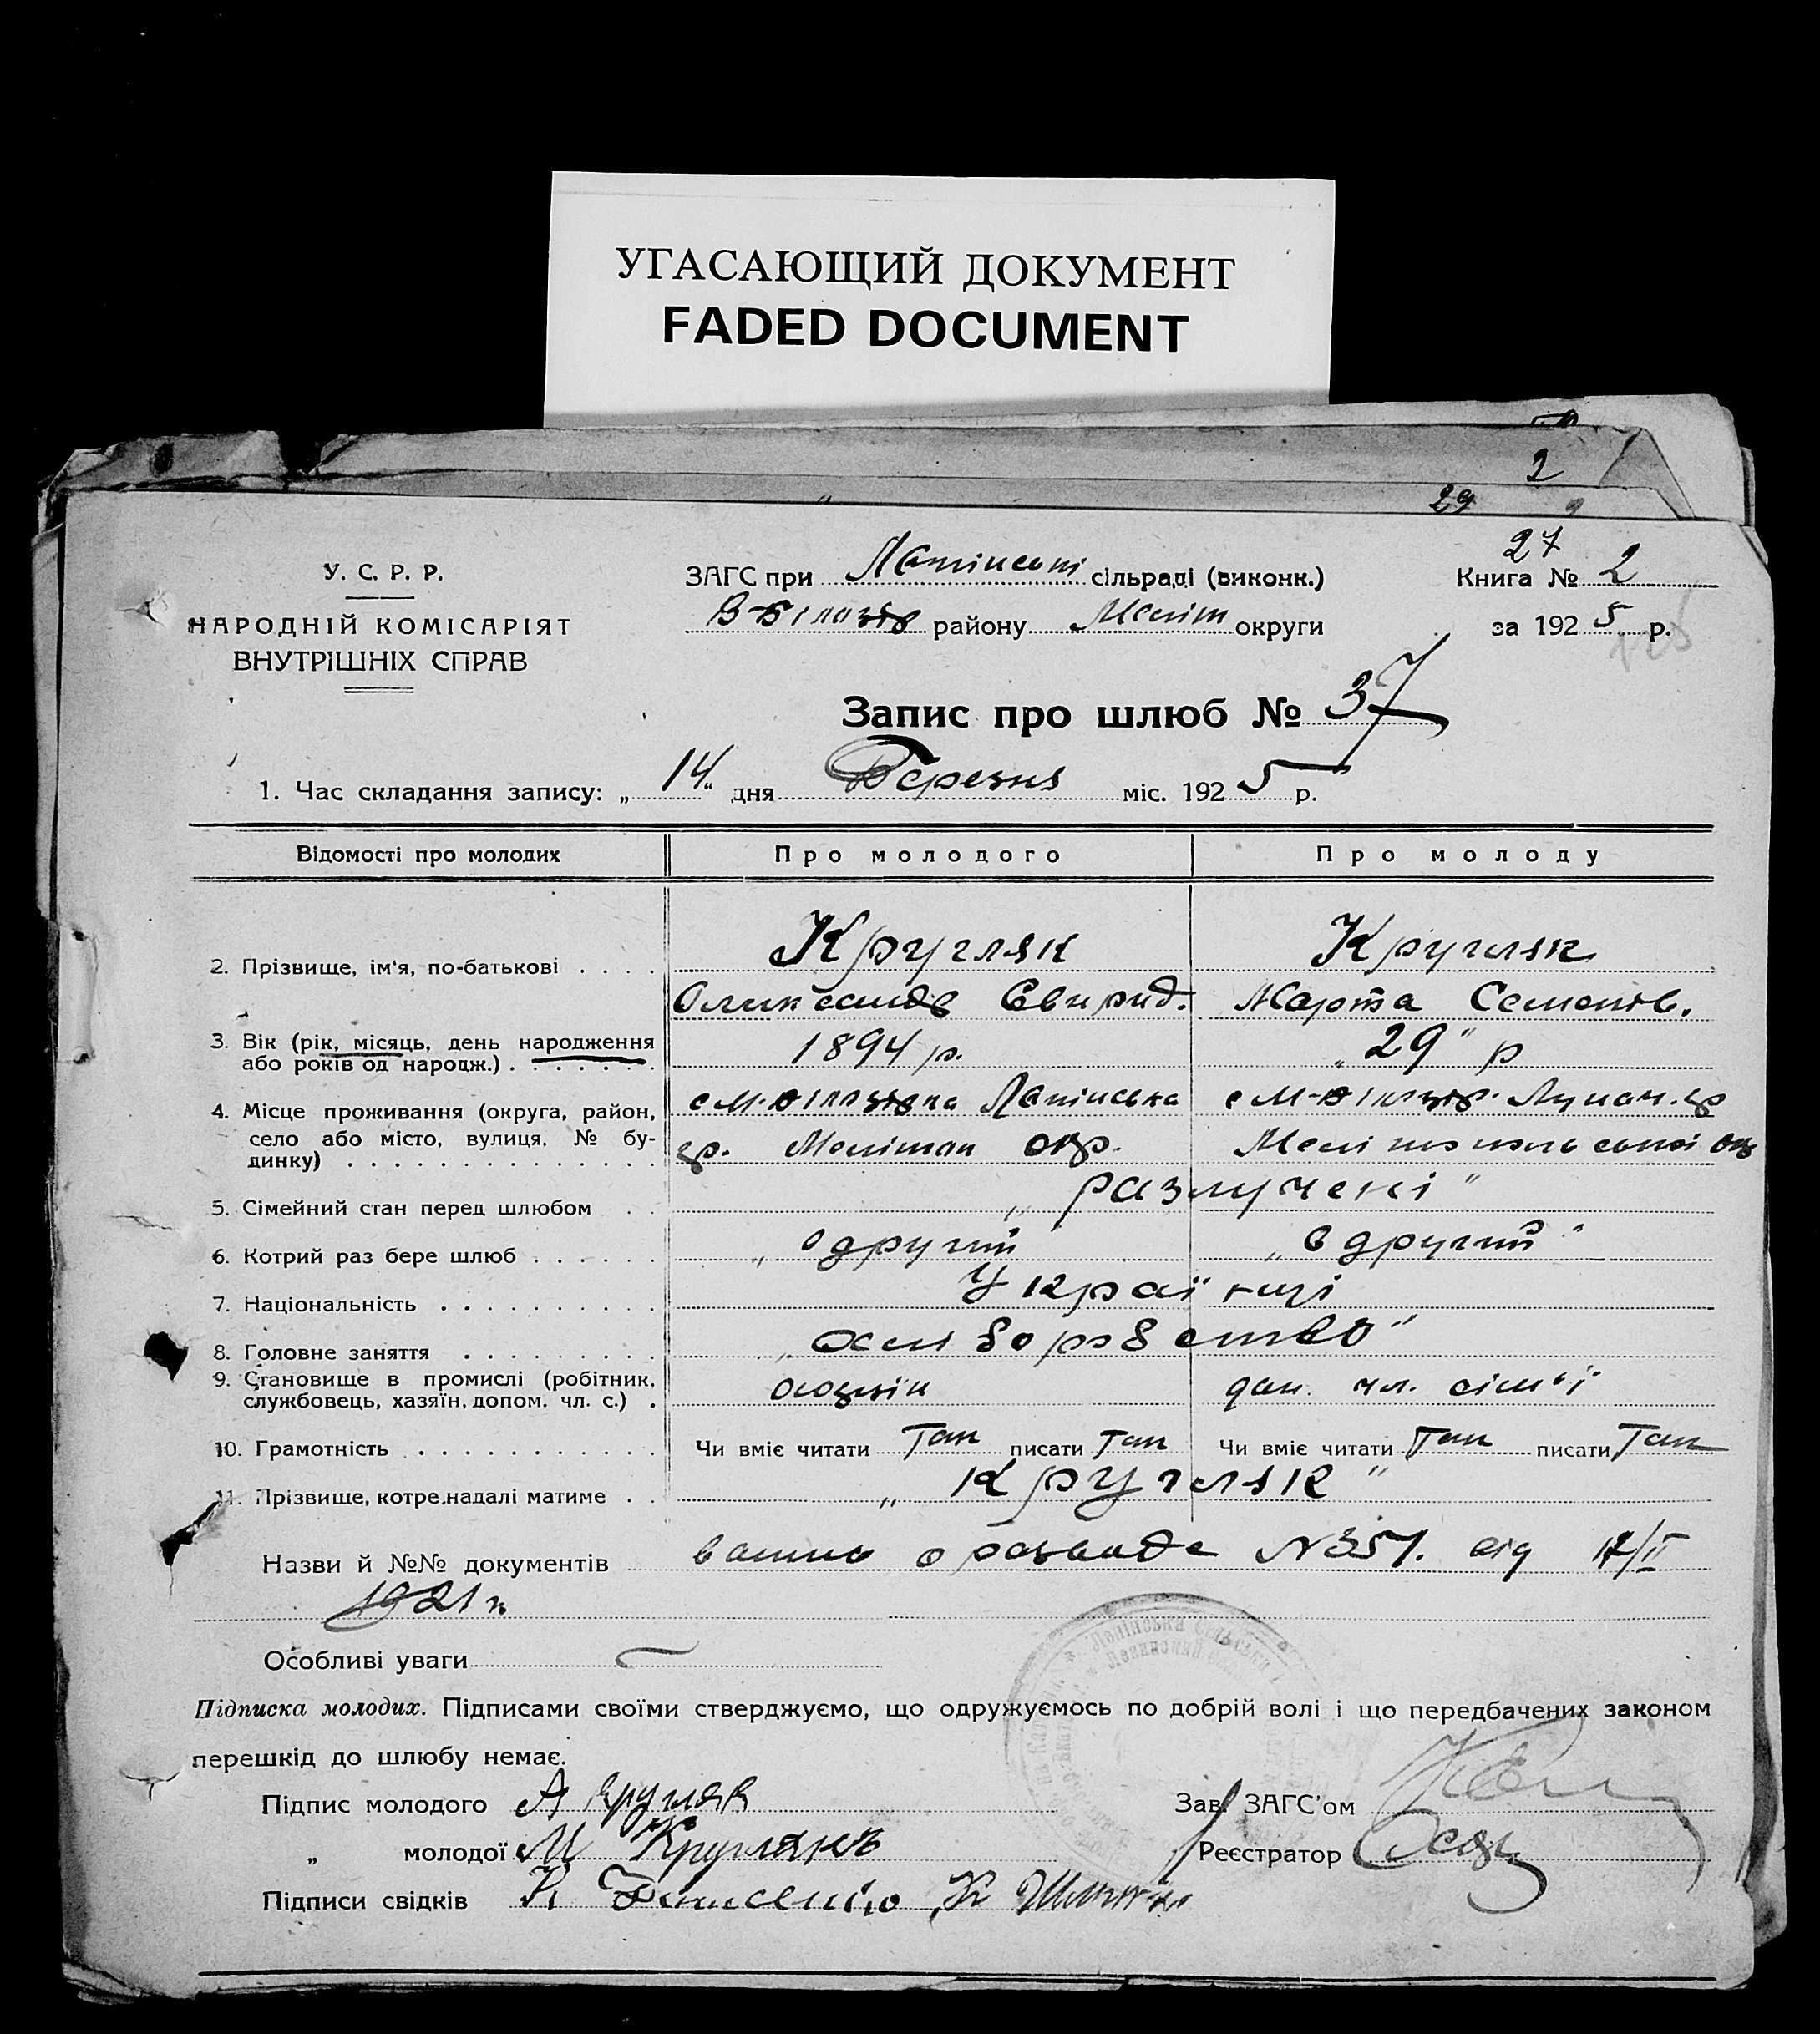 УГАСАЮЩИЙ ДОКУМЕНТ
FADED DOCUMENT
2
29
27
У. С. Р. Р.
НАРОДНІЙ КОМІСАРІЯТ
ВНУТРІШНІХ СПРАВ
ЗАГС при сільраді (виконк.)
В-Білозір району Меліт округи
Книга № 2
за 1925 р.
Запис про шлюб № 37
1. Час складання запису: „14“ дня Березня міс. 1925 р.
Відомості про молодих Про молодого Про молоду
2. Прізвище, ім'я, по-батькові . . . . Кругляк Кругляк
Олександр Свирид. Марта Семенів.
3. Вік (рік, місяць, день народження
або років од народж.) . . . . . . . 1894 р. „29" р
4. Місце проживання (округа, район,
село або місто, вулиця, № бу-
динку) . . . . . . . . . . . . . .
5. Сімейний стан перед шлюбом . . „разлучені"
6. Котрий раз бере шлюб . . . . . . „вдругий „вдругий"
7. Національність . . . . . . . . . . Українці
8. Головне заняття . . . . . . . . .
9. Становище в промислі (робітник,
службовець, хазяїн, допом. чл. с.) . доп. чл. сім'ї
10. Грамотність . . . . . . . . . . . Чи вміє читати Так писати Так Чи вміє читати Так писати Так
11. Прізвище, котре надалі матиме . . „Кругляк"
Назви й №№ документів о разводе №351. від /II
1921 р
Особливі уваги
Підписка молодих. Підписами своїми стверджуємо, що одружуємось по добрій волі і що передбачених законом
перешкід до шлюбу немає.
Підпис молодого А Кругляк
Зав. ЗАГС'ом
„ молодої М Кругляк
Реєстратор
Підписи свідків Денисенко